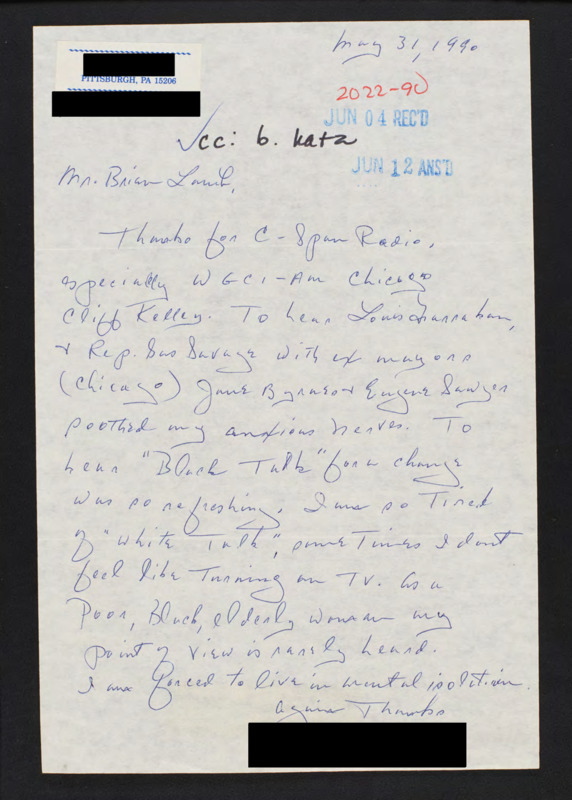 May 31, 1990
PITTSBURGH, PA 15206
2022-90
JUN 04 REC'D
cc: b. katz
JUN 12 ANS'D
Mr. Brian Lamb,
Thanks for C-Span Radio,
especially WGCI-Am Chicago
Cliff Kelley. To hear Louis Farrakan,
& Rep. Gus Savage with ex mayors
(Chicago) Jane Byrnes & Eugene Sawyer
soothed my anxious nerves. To
hear "Black Talk" for a change
was so refreshing. I am so Tired
of "White Talk", some Times I dont
feel like Turning on TV. As a
Poor, Black, elderly woman my
point of view is rarely heard.
I am forced to live in mental isolation.
Again Thanks